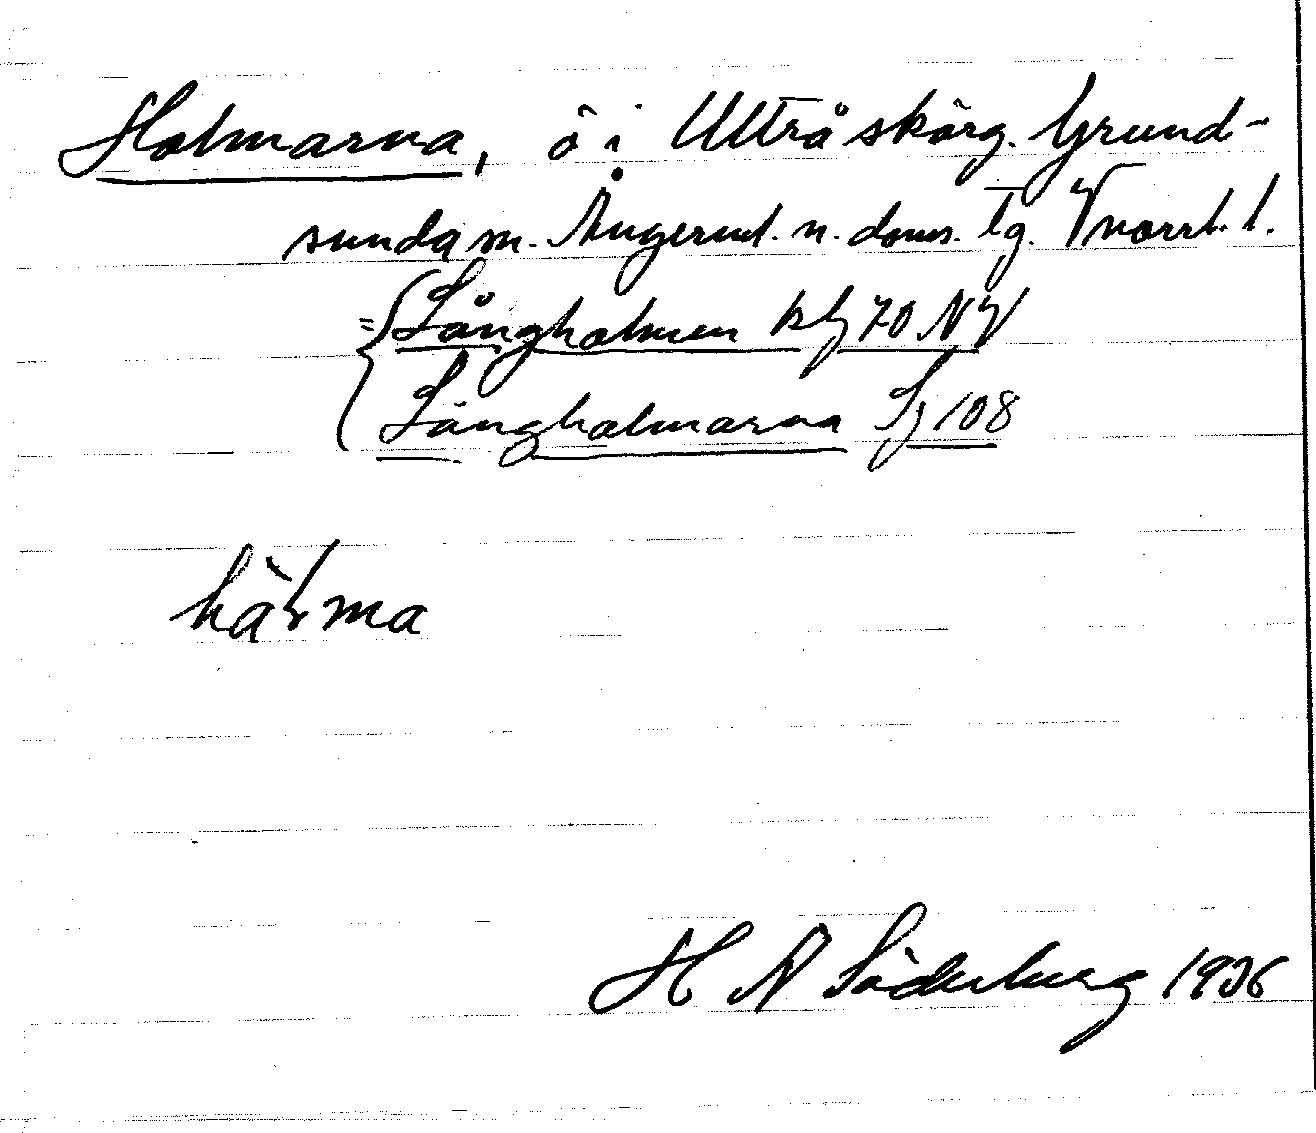 Holmarna, ö i Ulvö skärg. Grund-
sunda sn. Ångerml. n. doms. lg. Vnorrl. l.
= { Långholmen blg 70 NV
Långholmarna Lg 108
hàɫma
H N Söderberg 1936